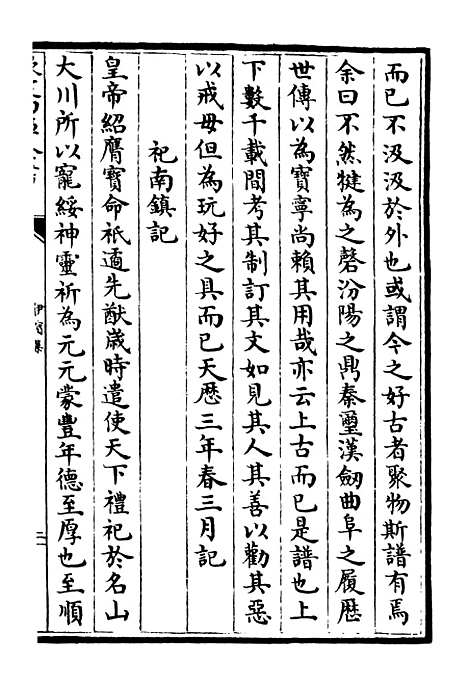 而已不汲汲於外也或謂今之好古者聚物斯譜有焉
余曰不然犍為之磬汾陽之鼎秦璽漢劒曲阜之履歴
世傳以為寳寧尚賴其用哉亦云上古而已是譜也上
下數千載間考其制訂其文如見其人其善以勸其惡
以戒毋但為玩好之具而已天歴三年春三月記
祀南鎮記
皇帝紹膺寳命祇遹先猷歳時遣使天下禮祀於名山
大川所以寵綏神靈祈為元元蒙豐年德至厚也至順
伊濱集